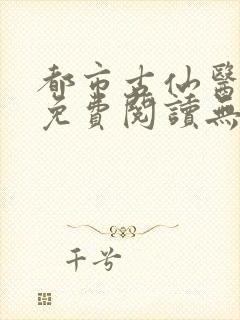 都市古仙醫
免費閱讀無
千兮